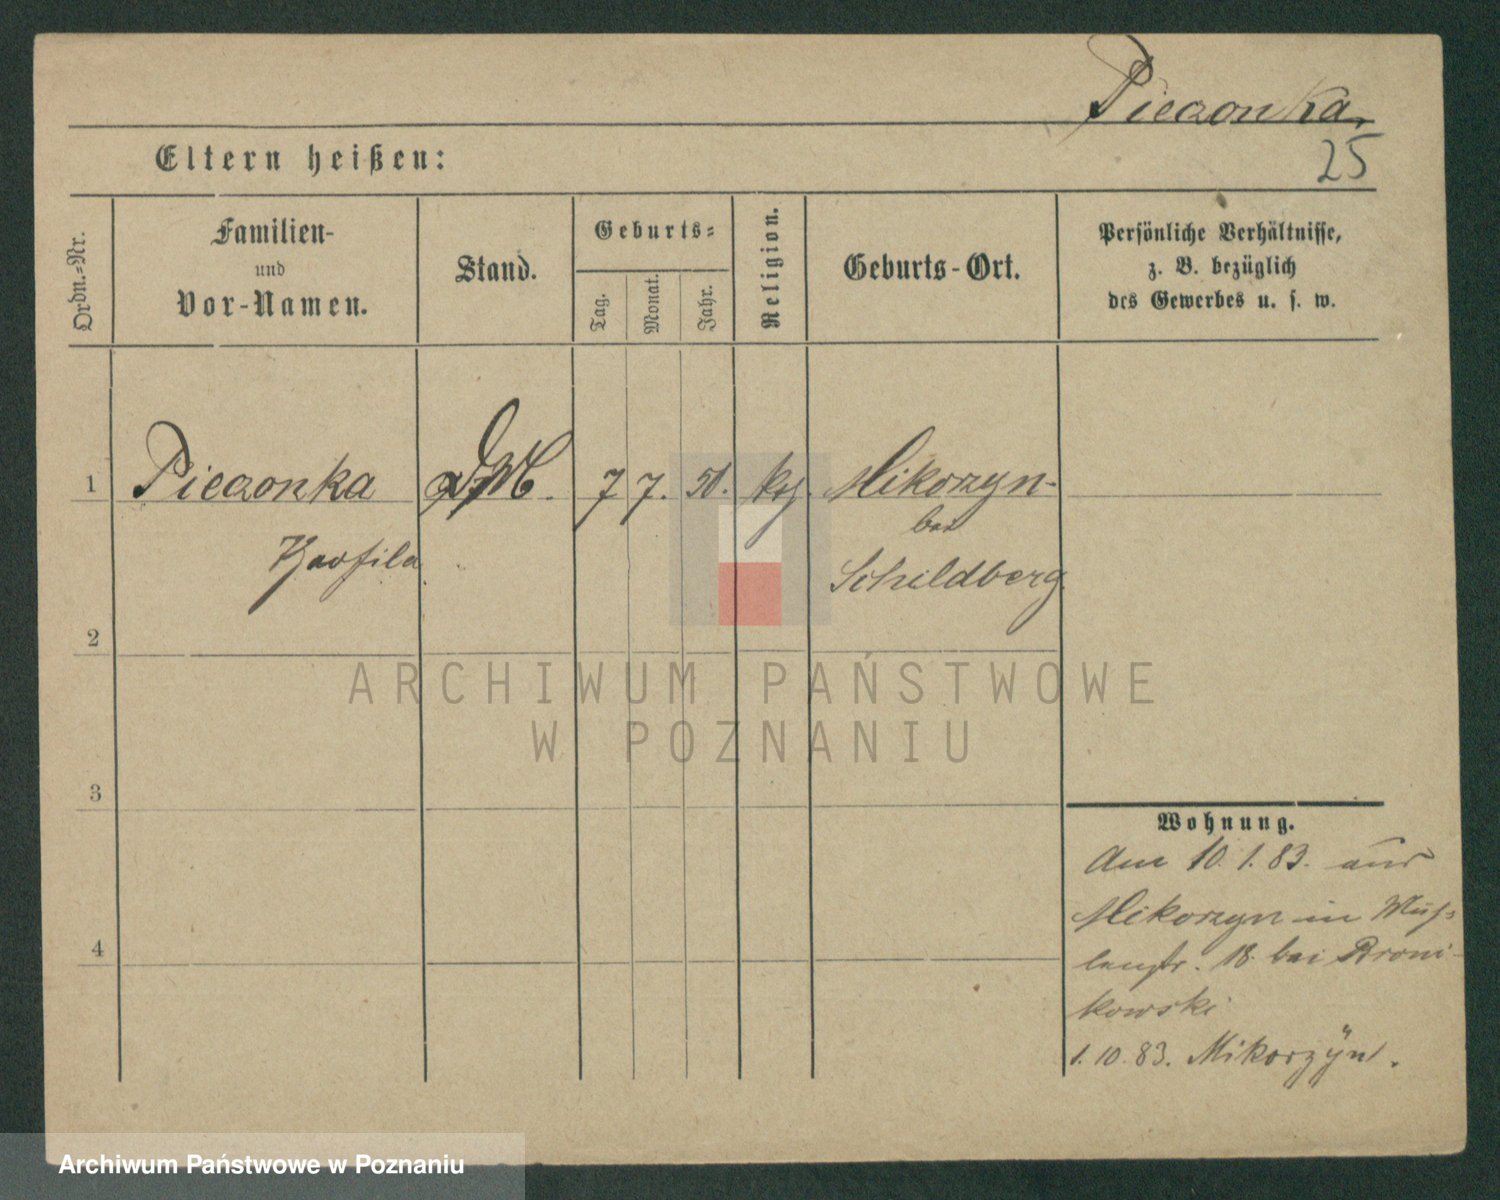 Pieczonka.
25
Eltern heißen:
Ordn.-Nr.
Familien-
und
Vor-Namen.
Stand.
Geburts-
Tag.
Monat.
Jahr.
Religion.
Geburts-Ort.
Persönliche Verhältnisse,
z. B. bezüglich
des Gewerbes u. s. w.
1
Pieczonka
7 7. Mikorzyn
bei
Schildberg
2
ARCHIWUM PAŃSTWOWE
W POZNANIU
3
4
Wohnung.
Am 10.1.83. aus
Mikorzyn in Müh-
lenstr. 18 bei Broni-
kowski
1.10.83. Mikorzyn.
Archiwum Państwowe w Poznaniu